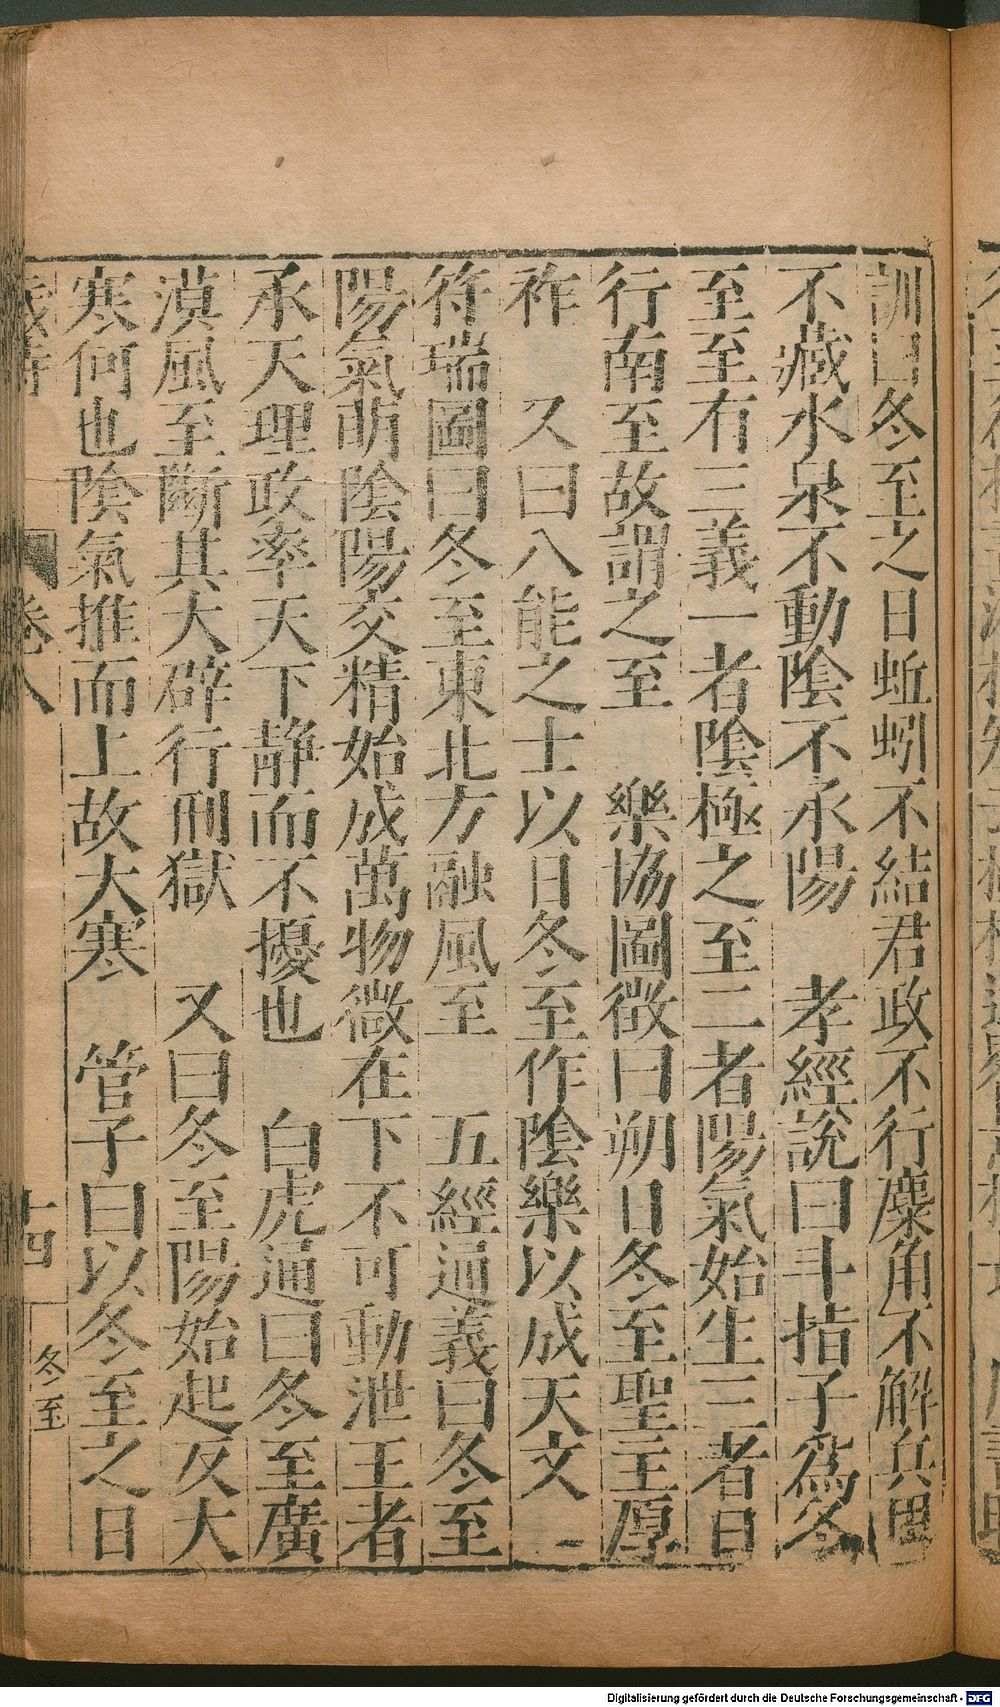 訓曰冬至之日蚯蚓不結君政不行麋角不解兵甲
不藏水泉不動陰不承陽　孝經說曰斗指子爲冬
至至有三義一者陰極之至二者陽氣始生三者日
行南至故謂之至　樂協圖徵曰朔日冬至聖主厚
祚　又曰八能之士以日冬至作陰樂以成天文
符瑞圖曰冬至東北方融風至　五經通義曰冬至
陽氣萌陰陽交精始成萬物微在下不可動泄王者
承天理政率天下静而不擾也　白虎通曰冬至廣
漠風至斷其大辟行刑獄　又曰冬至陽始起反大
寒何也陰氣推而上故大寒　管子曰以冬至之日
歲時　卷八　十四　冬至
Digitalisierung gefördert durch die Deutsche Forschungsgemeinschaft - DFG